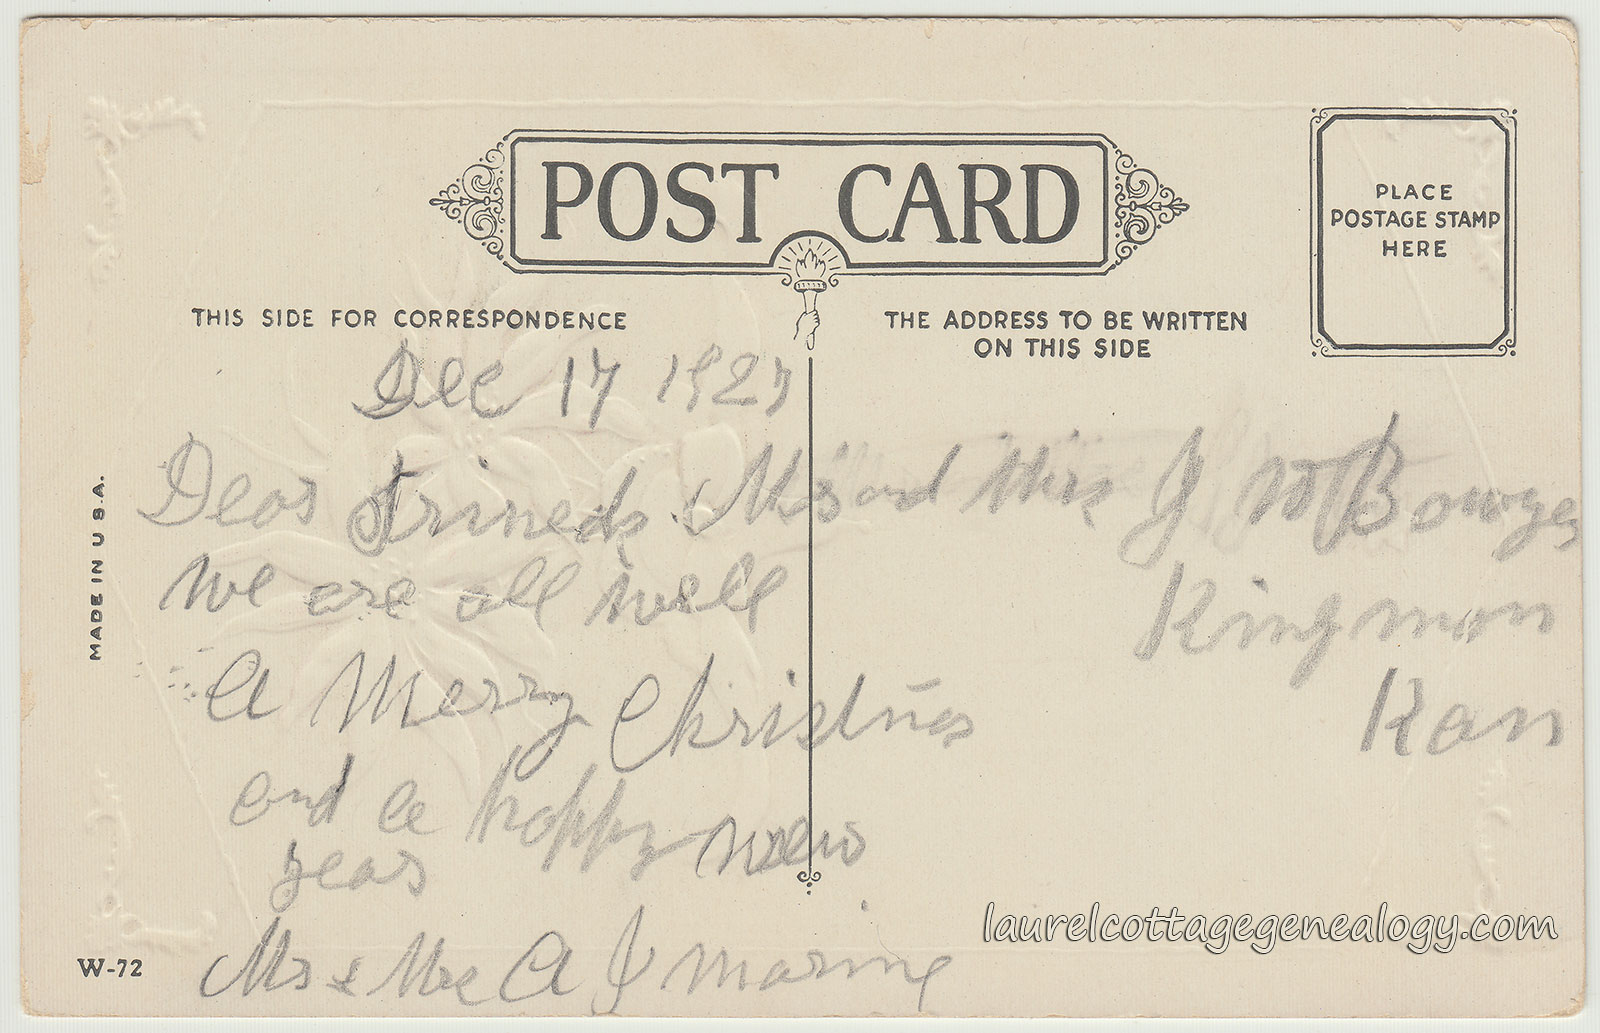 POST CARD
PLACE
POSTAGE STAMP
HERE
THIS SIDE FOR CORRESPONDENCE
THE ADDRESS TO BE WRITTEN
ON THIS SIDE
Dec 17 1927
Dear Frineds
We are all well
A Merry Christmas
and a happy new
year
Mr & Mrs A J Marine
Mr and Mrs J W Bowyer
Kingman
Kan
MADE IN U.S.A.
W-72
laurelcottagegenealogy.com